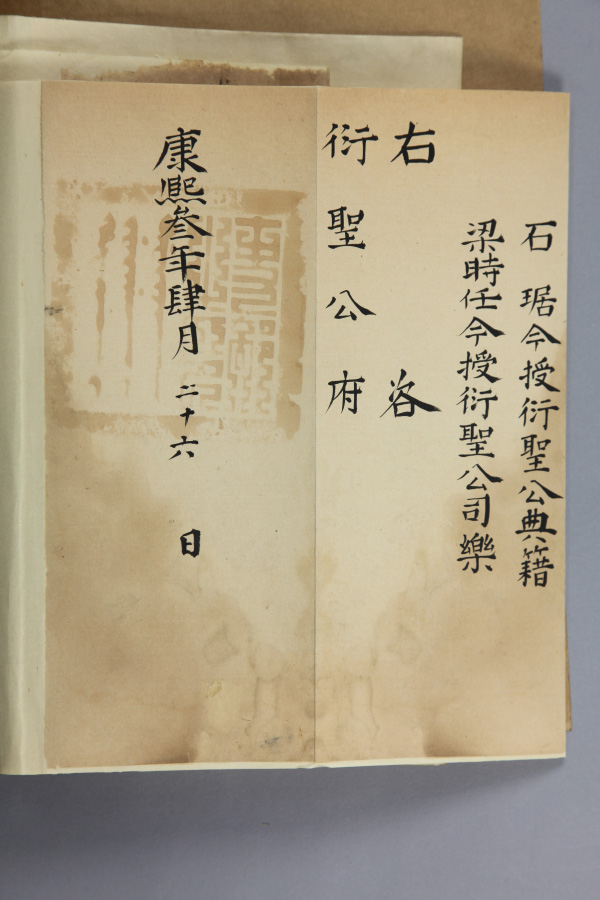 石琚今授衍聖公典籍
梁時任今授衍聖公司樂
右咨
衍聖公府
康熙叁年肆月二十六日